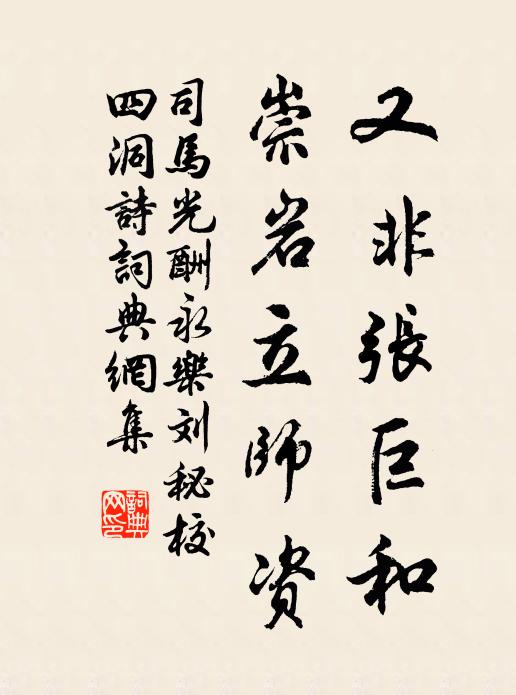 又非張巨和
崇岩立師资
司馬光酬永樂刘秘校
四洞詩詞典網集
詞典网印